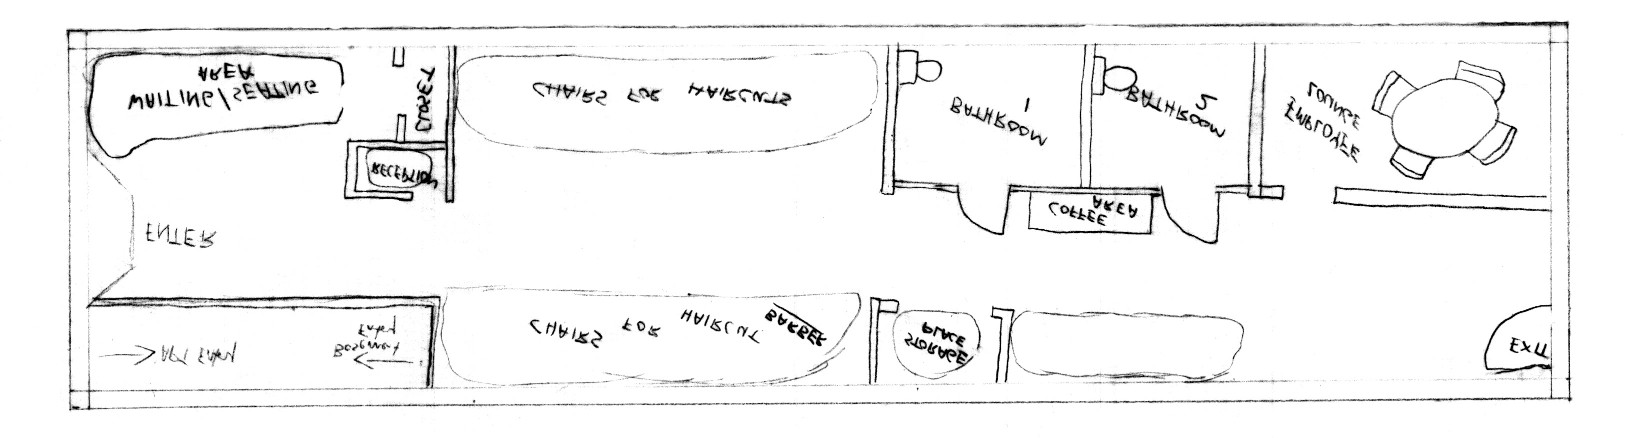 WAITING/SEATING
AREA
CLOSET
RECEPTION
CHAIRS FOR HAIRCUTS
BATHROOM
1
BATHROOM
2
EMPLOYEE
LOUNGE
COFFEE
AREA
ENTER
APT Enter
Basement
Enter
CHAIRS FOR HAIRCUT BARBER
STORAGE/
PLACE
EXIT